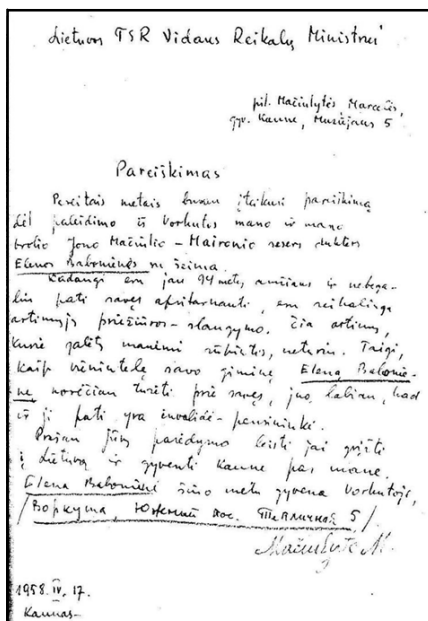 Lietuvos TSR Vidaus Reikalų Ministrui
pil. Mačiulytės Marcelės,
gyv. Kaune, Muziejaus 5
Pareiškimas
Pereitais metais buvau įteikusi pareiškimą
dėl paleidimo iš Vorkutos mano ir mano
brolio Jono Mačiulio - Maironio sesers dukters
Elenos Balonienės su šeima.
Kadangi esu jau 94 metų amžiaus ir nebega-
liu pati savęs apsitarnauti, esu reikalinga
artimųjų priežiūros - slaugymo. Čia artimų,
kurie galėtų manimi rūpintis, neturiu. Taigi,
kaip vienintelę savo giminę Eleną Balonie-
nę norėčiau turėti prie savęs, juo labiau, kad
ir ji pati yra invalidė - pensininkė.
Prašau Jūsų parėdymo leisti jai grįžti
į Lietuvą ir gyventi Kaune pas mane.
Elena Balonienė šiuo metu gyvena Vorkutoje,
/ Воркута, Южный пос. 5 /
Mačiulytė M.
1958. IV. 17.
Kaunas